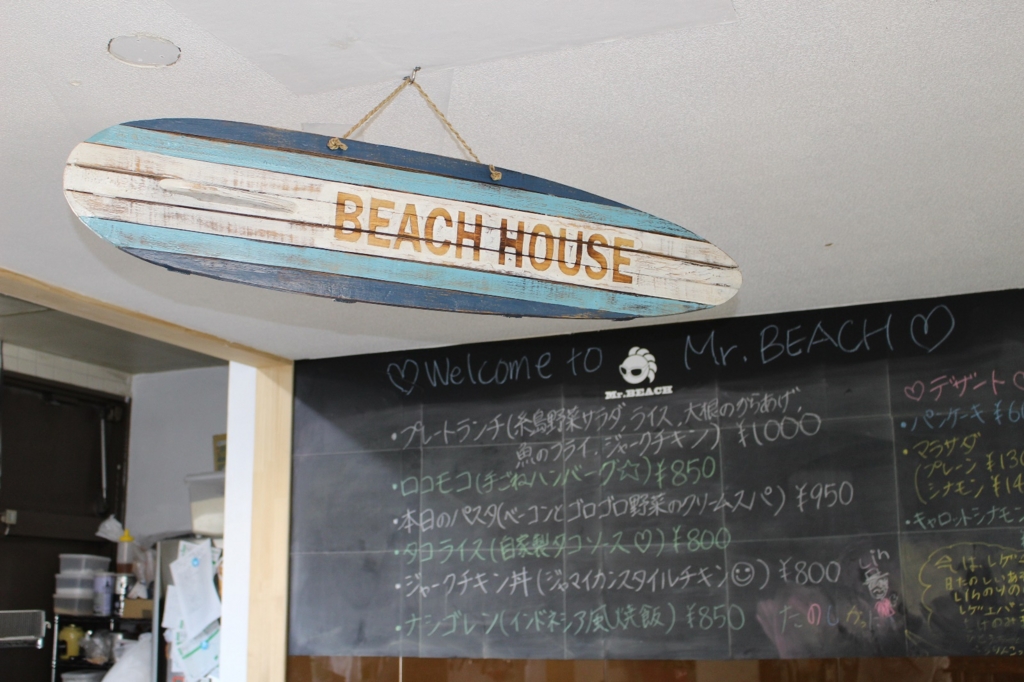 BEACH HOUSE
♡Welcome to Mr. BEACH♡
Mr.BEACH
・プレートランチ(糸島野菜サラダ,ライス,大根のからあげ,
魚のフライ,ジャークチキン) ¥1000
・ロコモコ(手ごねハンバーグ☆)¥850
・本日のパスタ(ベーコンとゴロゴロ野菜のクリームスパ) ¥950
・タコライス(自家製タコソース♡)¥800
・ジャークチキン丼(ジャマイカンスタイルチキン☺) ¥800
・ナシゴレン(インドネシア風焼飯)¥850
たのしかった
♡デザート♡
・パンケーキ
・マラサダ
(プレーン ¥130
(シナモン ¥14
・キャロットシナモン